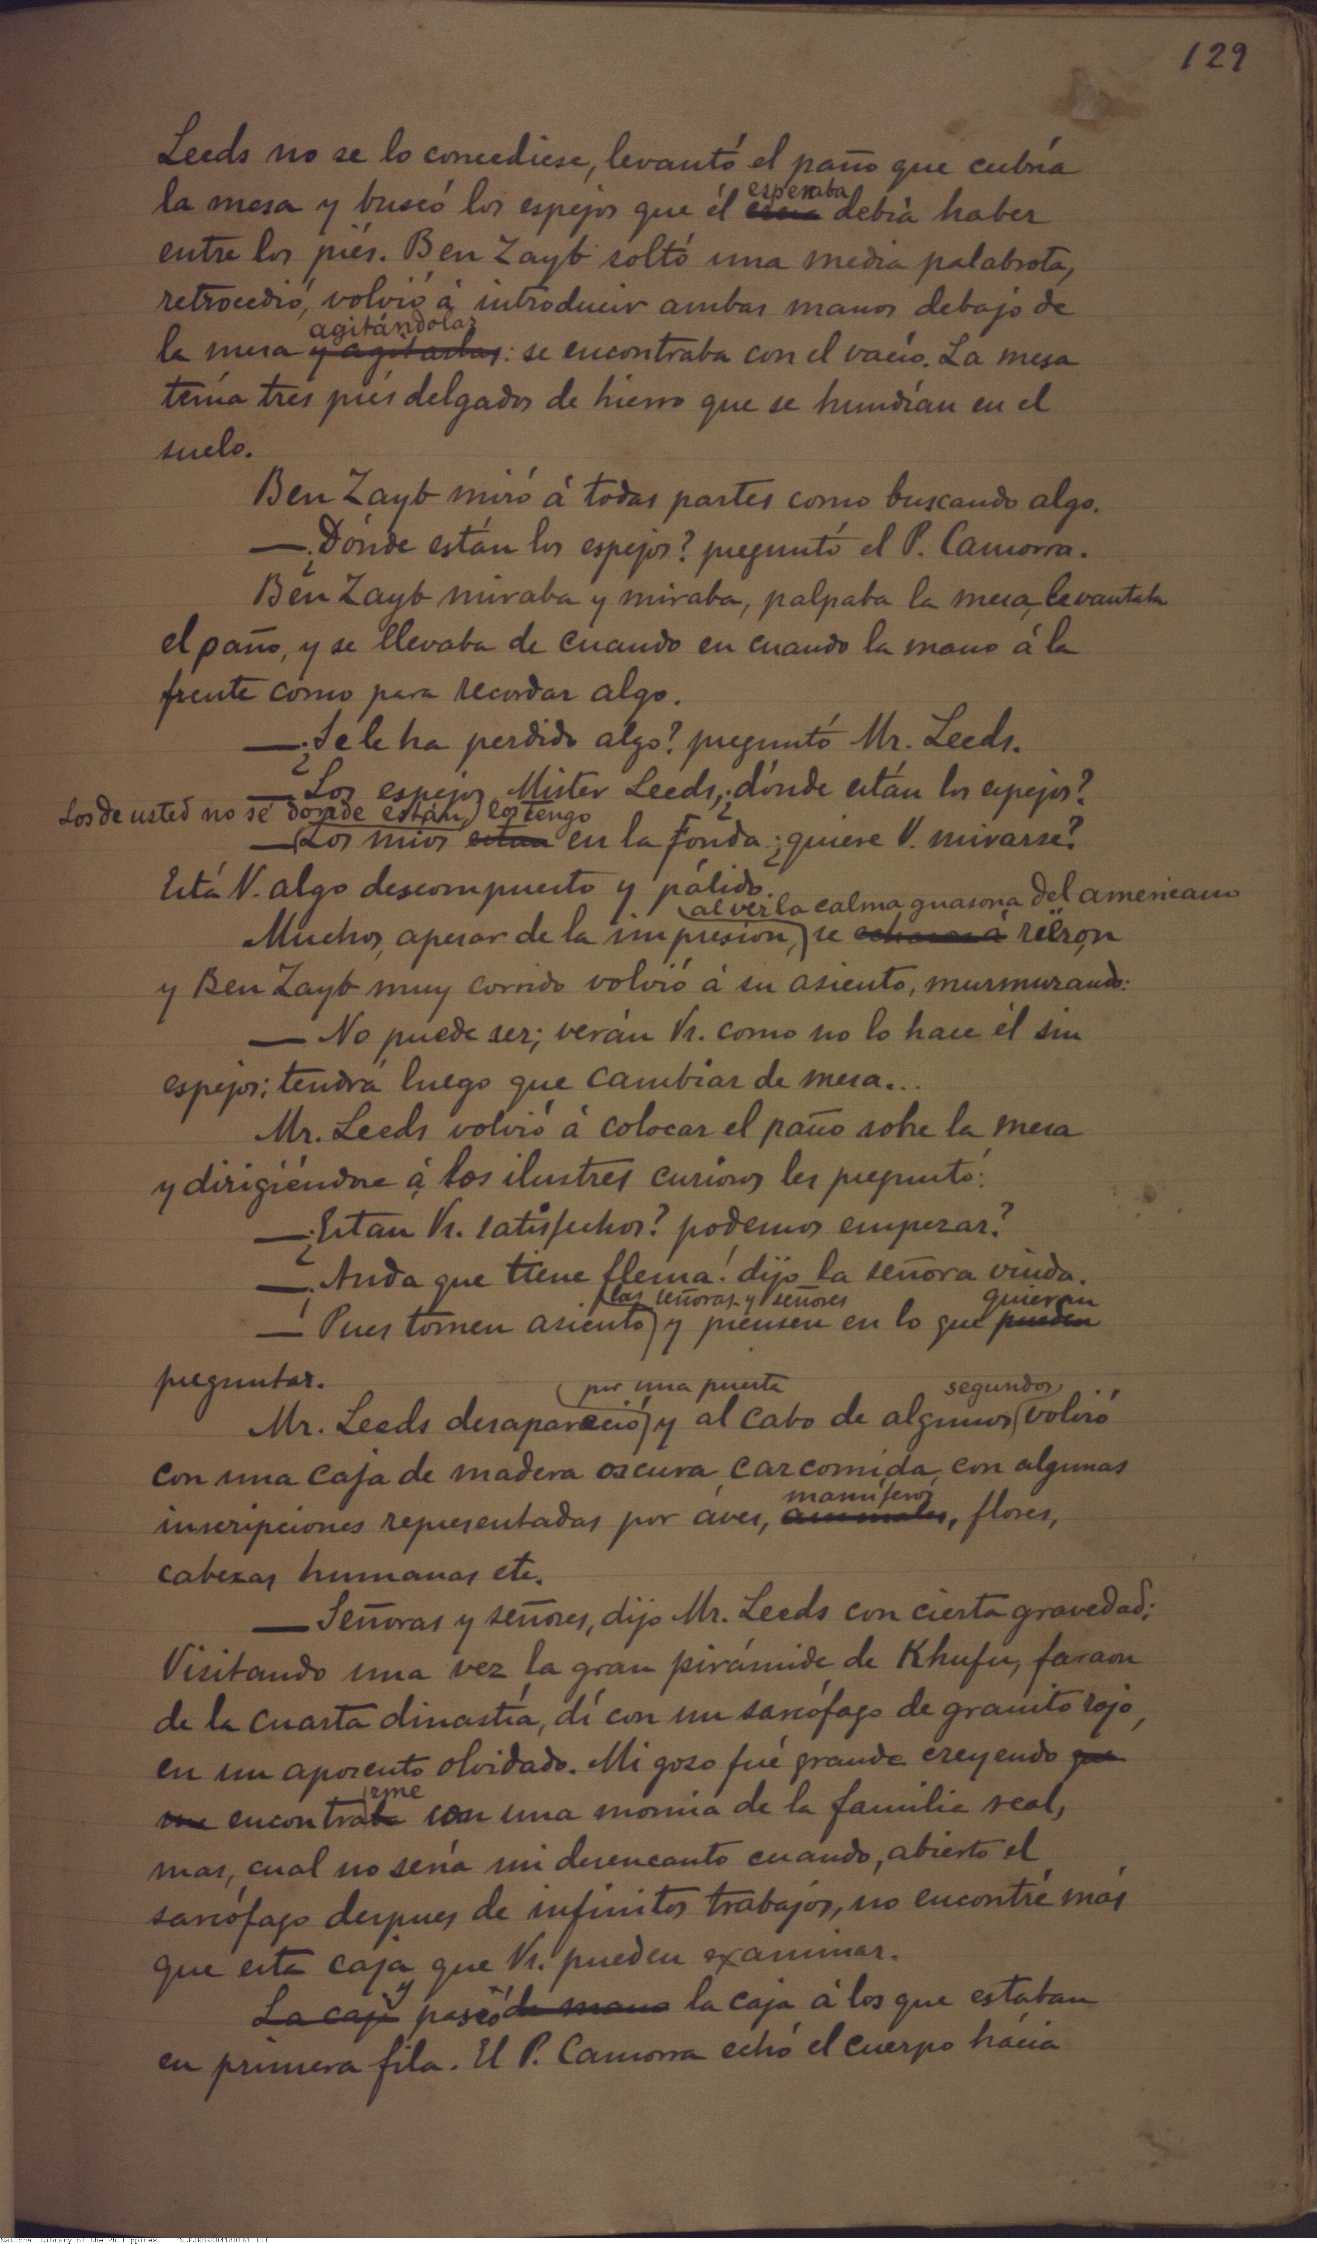 129
Leeds no se lo concediese, levantó el paño que cubría
esperaba
la mesa y buscó los espejos que él debía haber
entre los piés. Ben Zayb soltó una media palabrota,
retrocedió, volvió á introducir ambas manos debajo de
agitándolas
la mesa y agitarlas: se encontraba con el vacío. La mesa
tenía tres piés delgados de hierro que se hundían en el
suelo.
Ben Zayb miró á todas partes como buscando algo.
— ¿Dónde están los espejos? preguntó el P. Camorra.
Ben Zayb miraba y miraba, palpaba la mesa, levantaba
el paño, y se llevaba de cuando en cuando la mano á la
frente como para recordar algo.
— ¿Se le ha perdido algo? preguntó Mr. Leeds.
— Los espejos, Mister Leeds, ¿dónde están los espejos?
Los de usted no sé donde están, los tengo
— Los mios estan en la fonda ¿quiere V. mirarse?
Está V. algo descompuesto y pálido.
al ver la calma guasona del americano
Muchos, apesar de la impresion, se echaron á rieron
y Ben Zayb muy corrido volvió á su asiento, murmurando:
— No puede ser; verán Vs. como no lo hace él sin
espejos; tendrá luego que cambiar de mesa...
Mr. Leeds volvió á colocar el paño sobre la mesa
y dirigiéndose á los ilustres curiosos les preguntó:
— ¿Estan Vs. satisfechos? podemos empezar?
— ¡Anda que tiene flema! dijo la señora viuda.
las señoras y señores quieran
— Pues tomen asiento y piensen en lo que pueden
preguntar.
por una puerta segundos
Mr. Leeds desapareció y al cabo de algunos volvió
con una caja de madera oscura carcomida, con algunas
mamíferos
inscripciones representadas por áves, animales, flores,
cabezas humanas etc.
— Señoras y señores, dijo Mr. Leeds con cierta gravedad;
Visitando una vez la gran pirámide de Khufu, faraon
de la cuarta dinastía, dí con un sarcófago de granito rojo,
en un aposento olvidado. Mi gozo fué grande creyendo que
rme
me encontraba con una momia de la familia real,
mas, cual no sería mi desencanto cuando, abierto el
sarcófago despues de infinitos trabajos, no encontré más
que esta caja que Vs. pueden examinar.
y
La caja paseó de mano la caja á los que estaban
en primera fila. El P. Camorra echó el cuerpo hácia